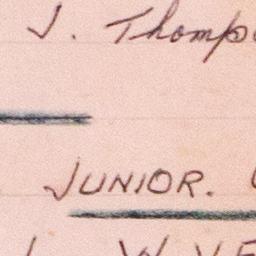 J. Thomp
JUNIOR.